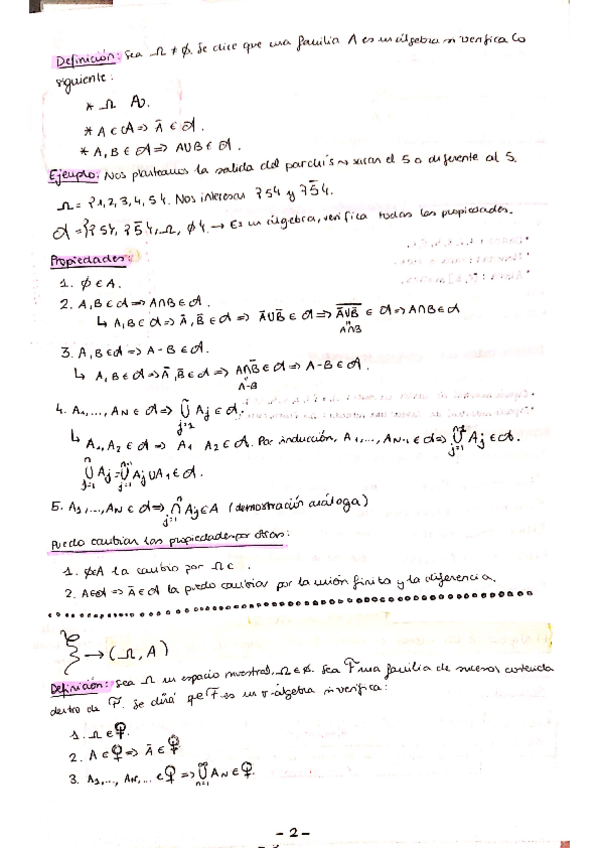 Definición: Sea Ω ≠ ∅. Se dice que una familia A es un álgebra si verifica lo
siguiente:
* Ω A.
* A ∈ A => Ā ∈ A.
* A, B ∈ A => A∪B ∈ A.
Ejemplo: Nos planteamos la salida del parchís → sacan el 5 o diferente al 5.
Ω = {1, 2, 3, 4, 5}. Nos interesa {5} y {5̄}.
A = {{5}, {5̄}, Ω, ∅}. → Es un álgebra, verifica todas las propiedades.
Propiedades:
1. ∅ ∈ A.
2. A, B ∈ A => A∩B ∈ A.
↳ A, B ∈ A => Ā, B̄ ∈ A => Ā∪B̄ ∈ A => \overline{Ā∪B̄} ∈ A => A∩B ∈ A
A∩B
3. A, B ∈ A => A - B ∈ A.
↳ A, B ∈ A => Ā, B̄ ∈ A => A∩B̄ ∈ A => A-B ∈ A.
A-B
4. A₁, ..., A_N ∈ A => ⋃_{j=1}^n A_j ∈ A.
↳ A₁, A₂ ∈ A => A₁ A₂ ∈ A. Por inducción, A₁, ..., A_{N-1} ∈ A => ⋃_{j=1}^{n-1} A_j ∈ A.
⋃_{j=1}^n A_j = ⋃_{j=1}^{n-1} A_j ∪ A₁ ∈ A.
5. A₁, ..., A_N ∈ A => ⋂_{j=1}^n A_j ∈ A (demostración análoga)
Puedo cambiar las propiedades por otras:
1. ∅ ∈ A la cambio por Ω ∈ .
2. A ∈ A => Ā ∈ A la puedo cambiar por la unión finita y la diferencia.
ξ → (Ω, A)
Definición: Sea Ω un espacio muestral, Ω ∈ ∅. Sea F una familia de sucesos contenida
dentro de P. Se dirá que F es un σ-álgebra si verifica:
1. Ω ∈ ♀.
2. A ∈ ♀ => Ā ∈ ♀
3. A₁, ..., A_N, ... ∈ ♀ => ⋃_{n=1}^∞ A_N ∈ ♀.
- 2 -